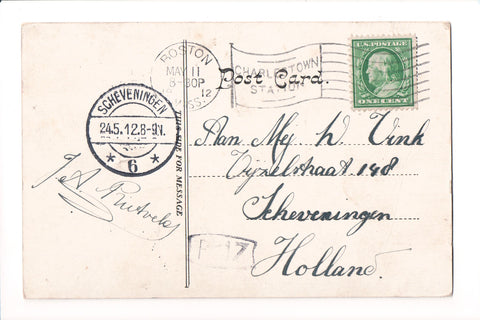 BOSTON
MAY 11
8-30P
12
MASS.
CHARLESTOWN
STATION
U.S. POSTAGE
ONE CENT
Post Card.
SCHEVENINGEN
24.5.12.8-9.N.
* 6 *
THIS SIDE FOR MESSAGE
Aan Mej W. Vink
Vijzelstraat 148
Scheveningen
Holland.
J. A.